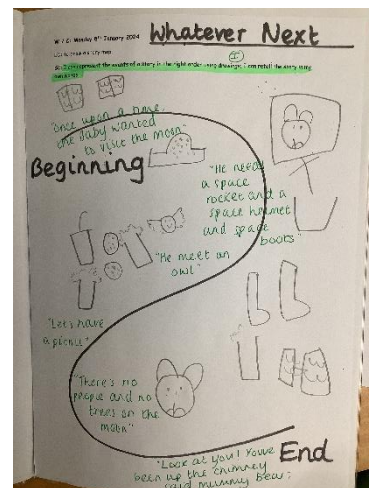 Whatever Next
W/C: Monday 8th January 2024
represent the events of a story in the right order using drawings. I can retell the story using
"Once upon a time,
the baby wanted
to visit the moon"
Beginning
"He needs
a space
rocket and a
space helmet
and space
boots"
"He meet an
owl"
"Let's have
a picnic"
"There's no
people and no
trees on the
moon"
"Look at you! You've
been up the chimney
said mummy bear.
End